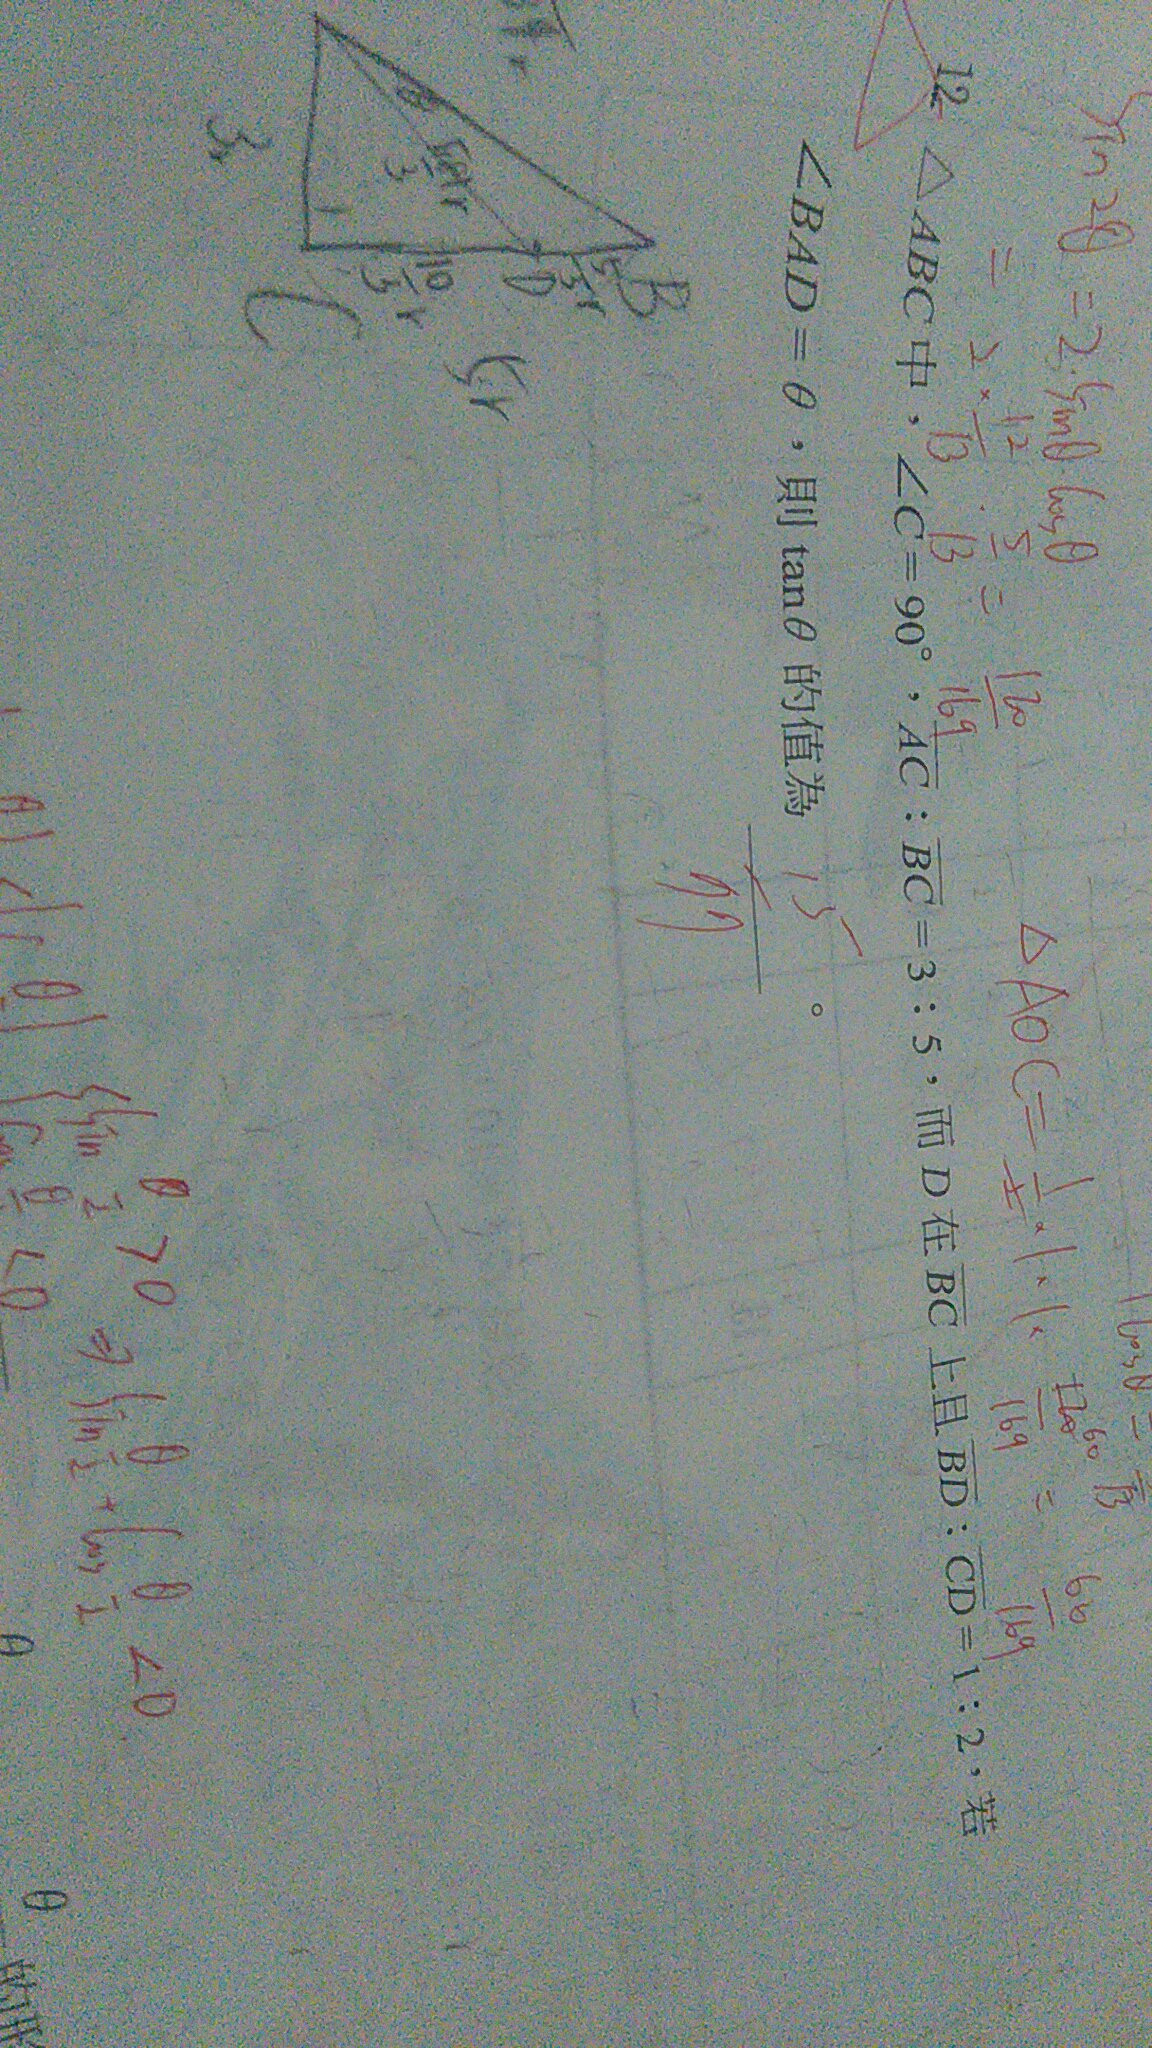 sin2θ = 2·sinθ cosθ
= 2 × 12/13 · 5/13 = 120/169
△AOC = 1/2 × 1 × 1 × 120/169 = 60/169
60
12. △ABC中，∠C=90°，AC：BC=3：5，而D在BC上且BD：CD=1：2，若
∠BAD=θ，則tanθ的值為 15/49 。
B
5/3r
D
10/3r
C
5r
3r
θ
sin θ/2 > 0 ⇒ sin θ/2 + cos θ/2 < 0
cos θ/2 < 0
θ